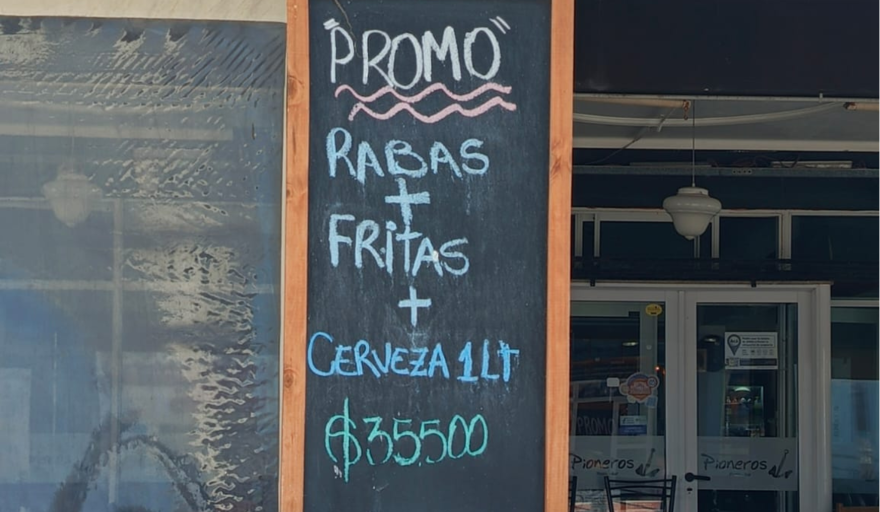 "PROMO"
RABAS
+
FRITAS
+
CERVEZA 1LT
$35500
PROMO
Pioneros
Pioneros